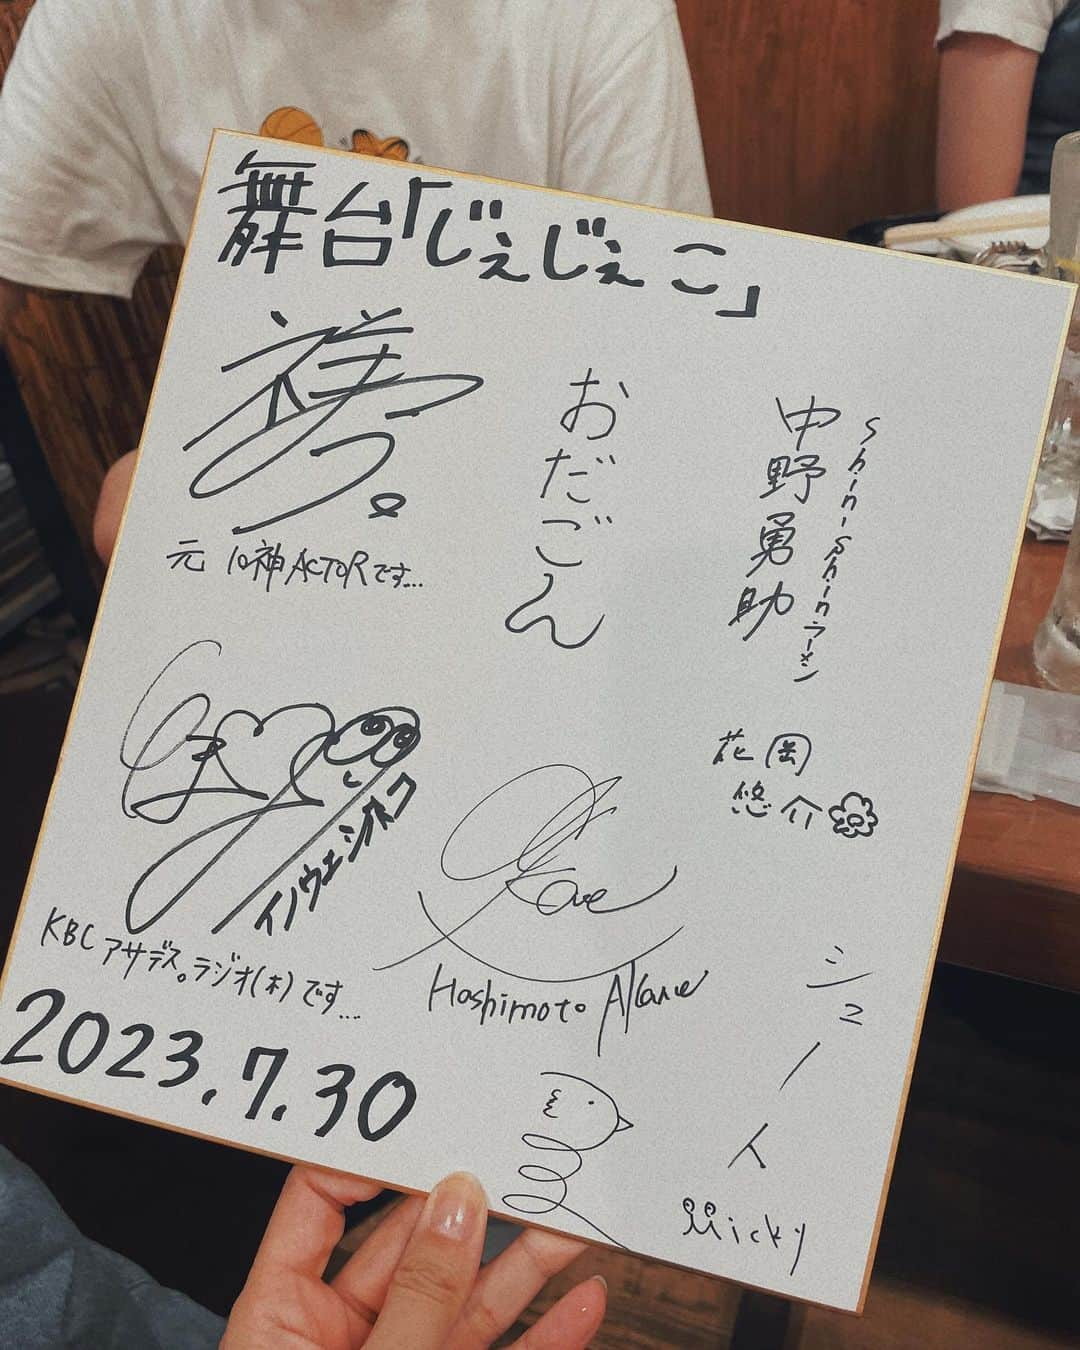 舞台「じぇじぇこ」
元 10神ACTORです…
おだごん
中野勇助
Shin-Shinラーメン
イノウエシンスケ
KBCアサデス。ラジオ(木)です…
花岡
悠介
Hoshimoto Akane
2023.7.30
シュノ人
Micky